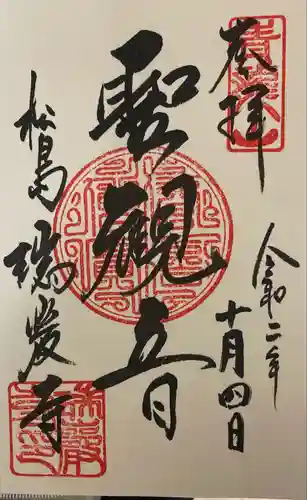 奉拝
令和二年
十月四日
聖観音
松島
瑞巌寺